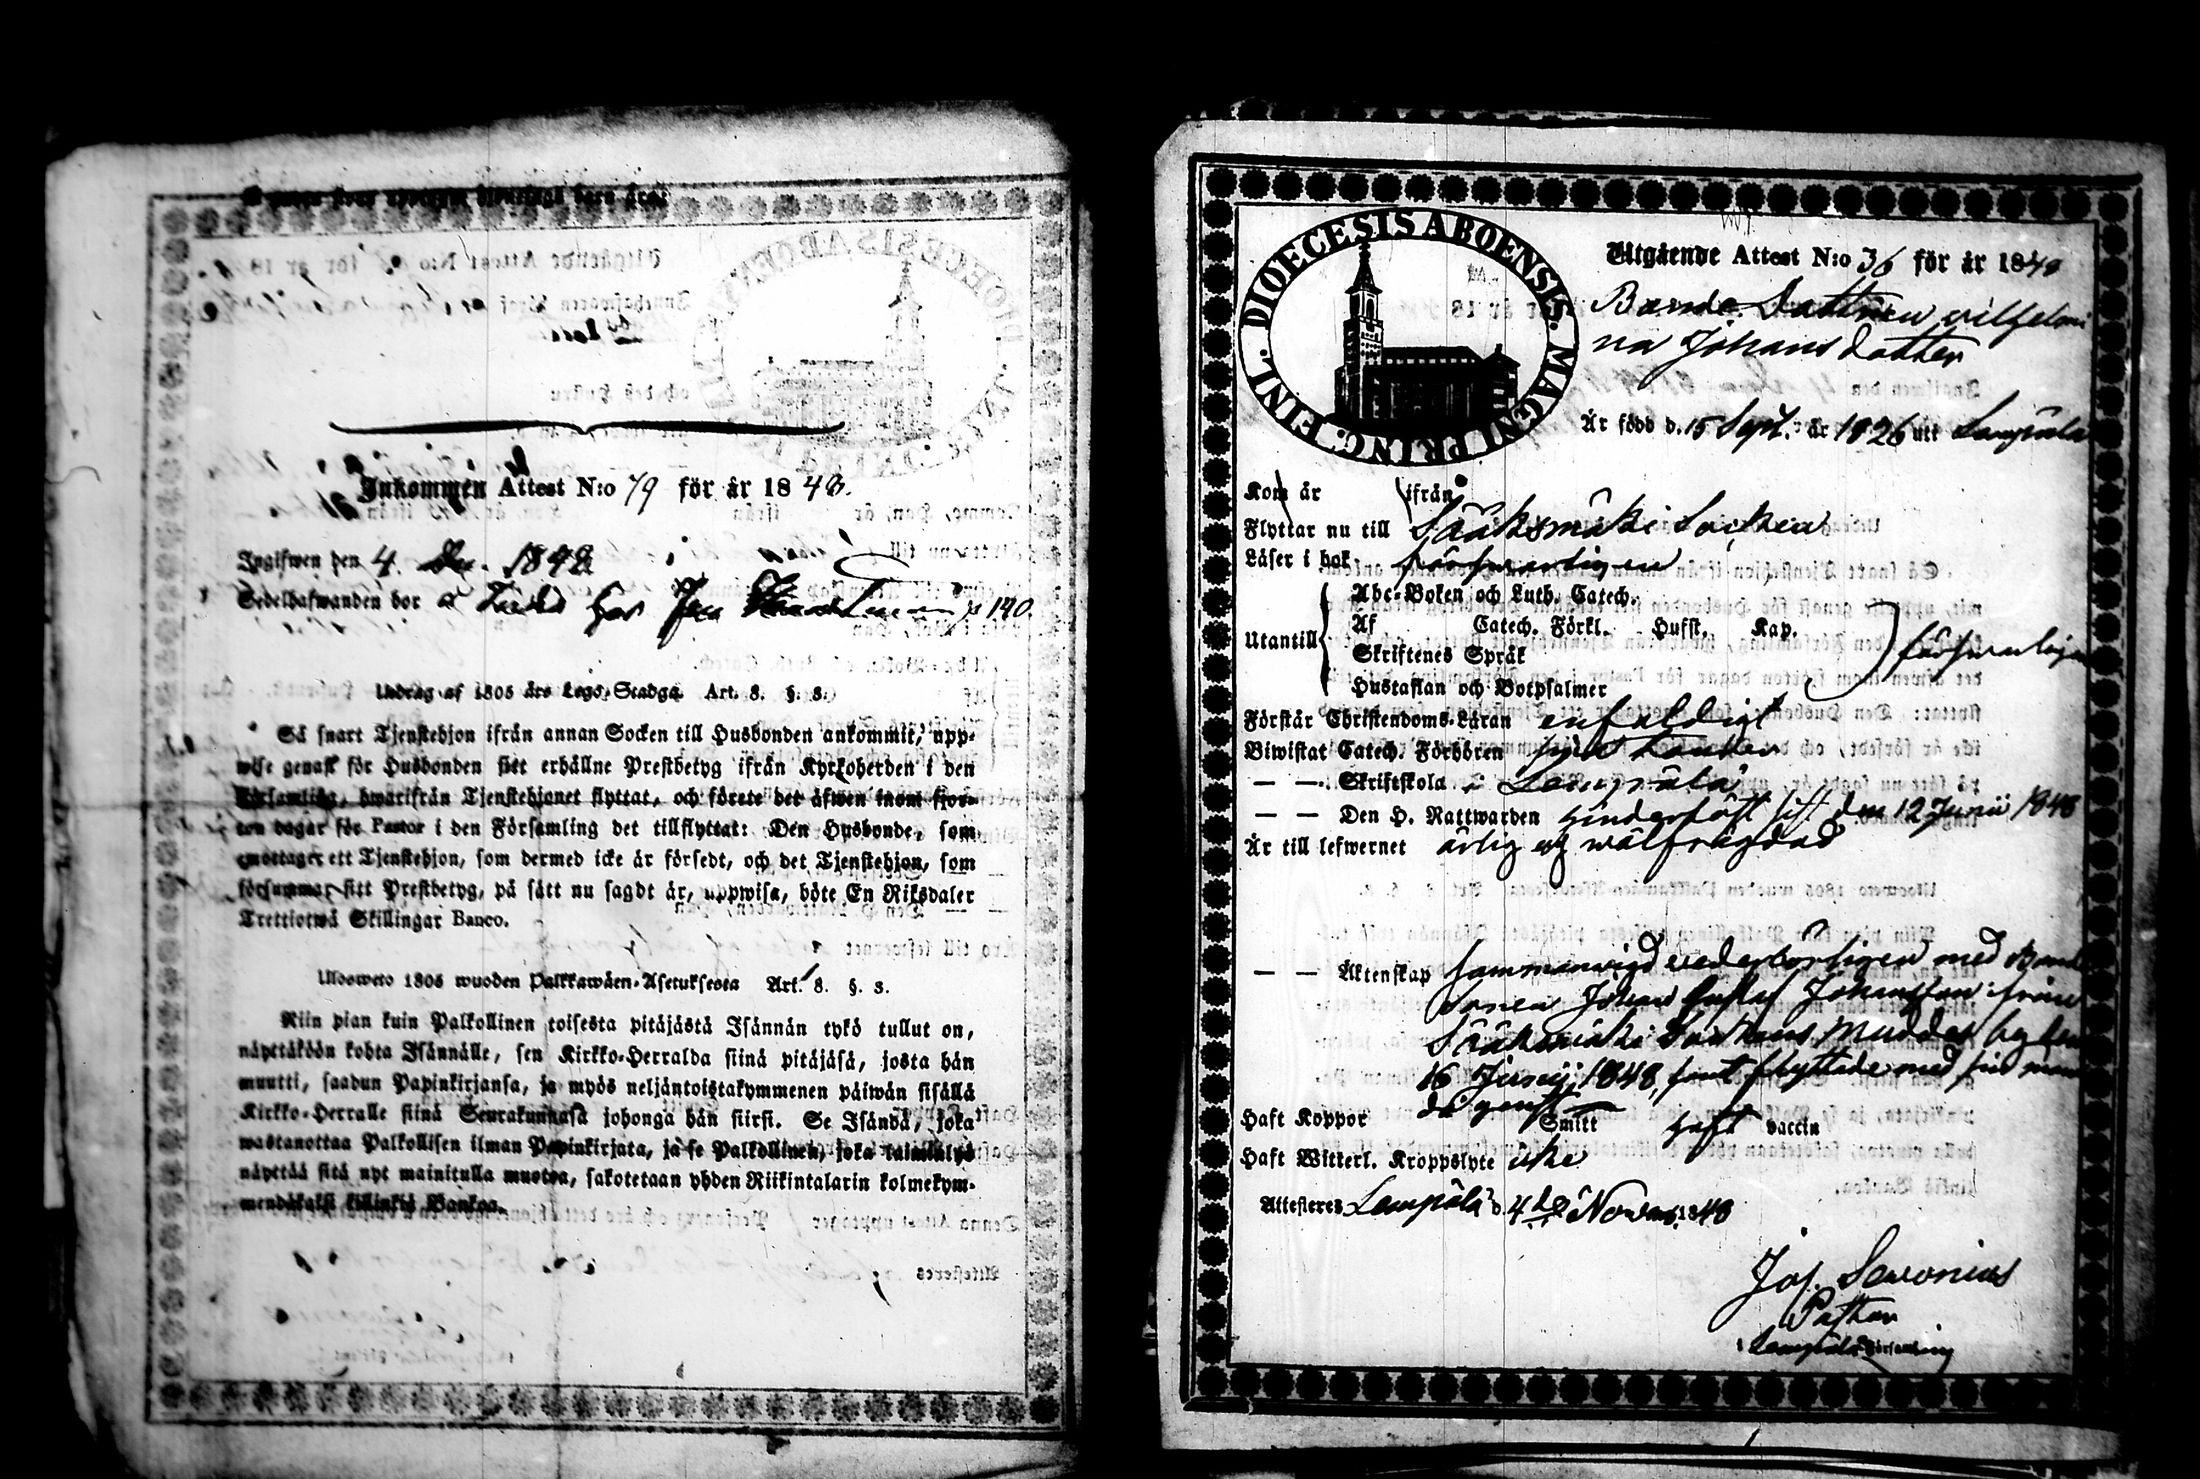 Inkommen Attest N:o 79 för år 1848.
Ingifwen den 4. Dec. 1848
Sedelhafwanden bor
p 140.
Utdrag af 1805 års Lego-Stadga. Art. 8. §. 3.
Så snart Tjenstehjon ifrån annan Socken till Husbonden ankommit, upp-
wise genast för Husbonden sitt erhållne Prestbetyg ifrån Kyrkoherden i den
Församling, hwarifrån Tjenstehjonet flyttat, och förete det äfwen inom fjor-
ton dagar för Pastor i den Församling det tillflyttat: Den Husbonde, som
emottager ett Tjenstehjon, som dermed icke är försedt, och det Tjenstehjon, som
försummar sitt Prestbetyg, på sätt nu sagdt är, uppwisa, böte En Riksdaler
Trettiotwå Skillingar Banco.
Ulosweto 1805 wuoden Palkkawäen-Asetuksesta Art. 8. §. 3.
Niin pian kuin Palkollinen toisesta pitäjästä Isännän tykö tullut on,
näyttäköön kohta Isännälle, sen Kirkko-Herralda siinä pitäjäsä, josta hän
muutti, saadun Papinkirjansa, ja myös neljäntoistakymmenen päiwän sisällä
Kirkko-Herralle siinä Seurakunnasa johonga hän siirsi. Se Isändä, joka
wastanottaa Palkollisen ilman Papinkirjata, ja se Palkollinen, joka laiminlyö
näyttää sitä nyt mainitulla muotoa, sakotetaan yhden Riikintalarin kolmekym-
mendäkaksi killinkiä Bankoa.
DIOECESIS ABOENSIS. MAGNI PRINC. FINL.
Utgående Attest N:o 36 för år 1848
Bonde Dottren Wilhelmi
na Johans dotter
Är född d. 15 Sept. år 1826 utt Lempälä
Kom är ifrån
Flyttar nu till Sääksmäki Socken
Läser i bok försvarligen
Utantill
Abc-Boken och Luth. Catech.
Af Catech. Förkl. Hufst. Kap.
Skriftenes Språk
Hustaflan och Botpsalmer
försvarligen
Förstår Christendoms-Läran enfaldigt
Biwistat Catech. Förhören
— — Skriftskola i Lempälä
— — Den H. Nattwarden hinderlöst sist den 12 Junii 1848
Är till lefwernet ärlig och wälfrägdad
— — Äktenskap sammanvigd vederbörligen med Bonde
Sonen Johan Gustaf Johansson ifrån
Sääksmäki Sockens
16 Junii 1848, samt flyttade med sin man
Haft Koppor Smitt haft vaccin
Haft Witterl. Kroppslyte icke
Attesteres Lempälä d. 4de Novem. 1848
Jos. Sevonius
Pastor
i Lempälä Församling